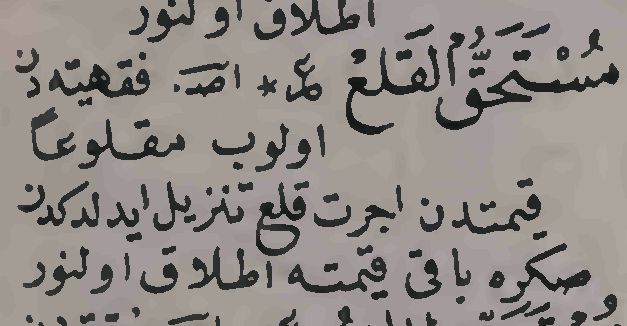 اطلاق اولنور
مُسْتَحَقُّ الْقَلْعْ عر * اصـ. فقهیته دن
اولوب مقلوعاً
قیمتدن اجرت قلع تنزیل ایدلدکدن
صکره باقی قیمته اطلاق اولنور